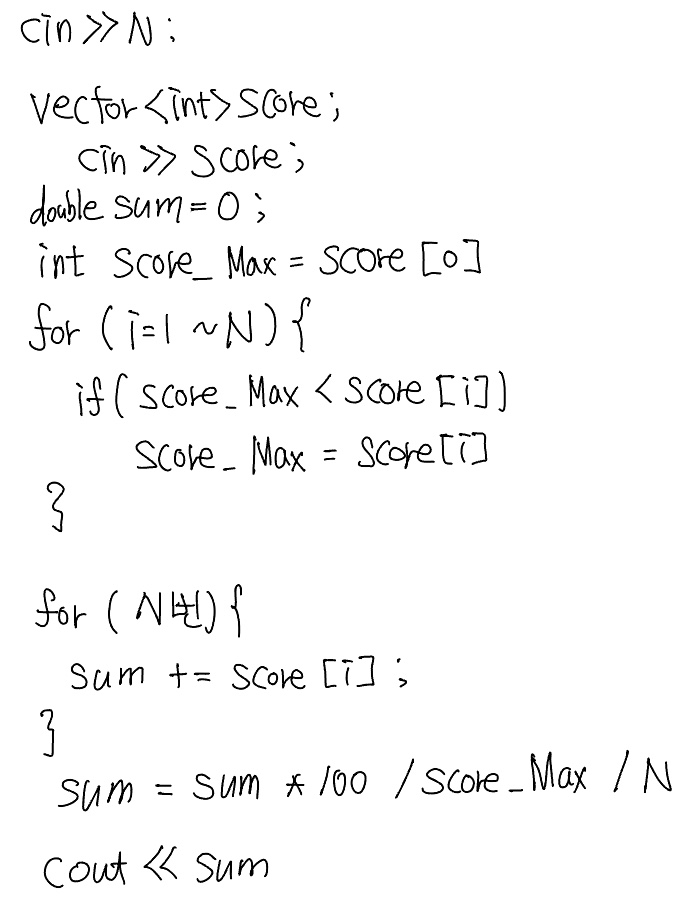 cin >> N ;
vector<int> score ;
cin >> score ;
double sum = 0 ;
int score_Max = score [0]
for ( i=1 ~ N ) {
if ( score_Max < score [i])
score_Max = score[i]
}
for ( N번) {
sum += score [i] ;
}
sum = sum * 100 / score_Max / N
cout << sum